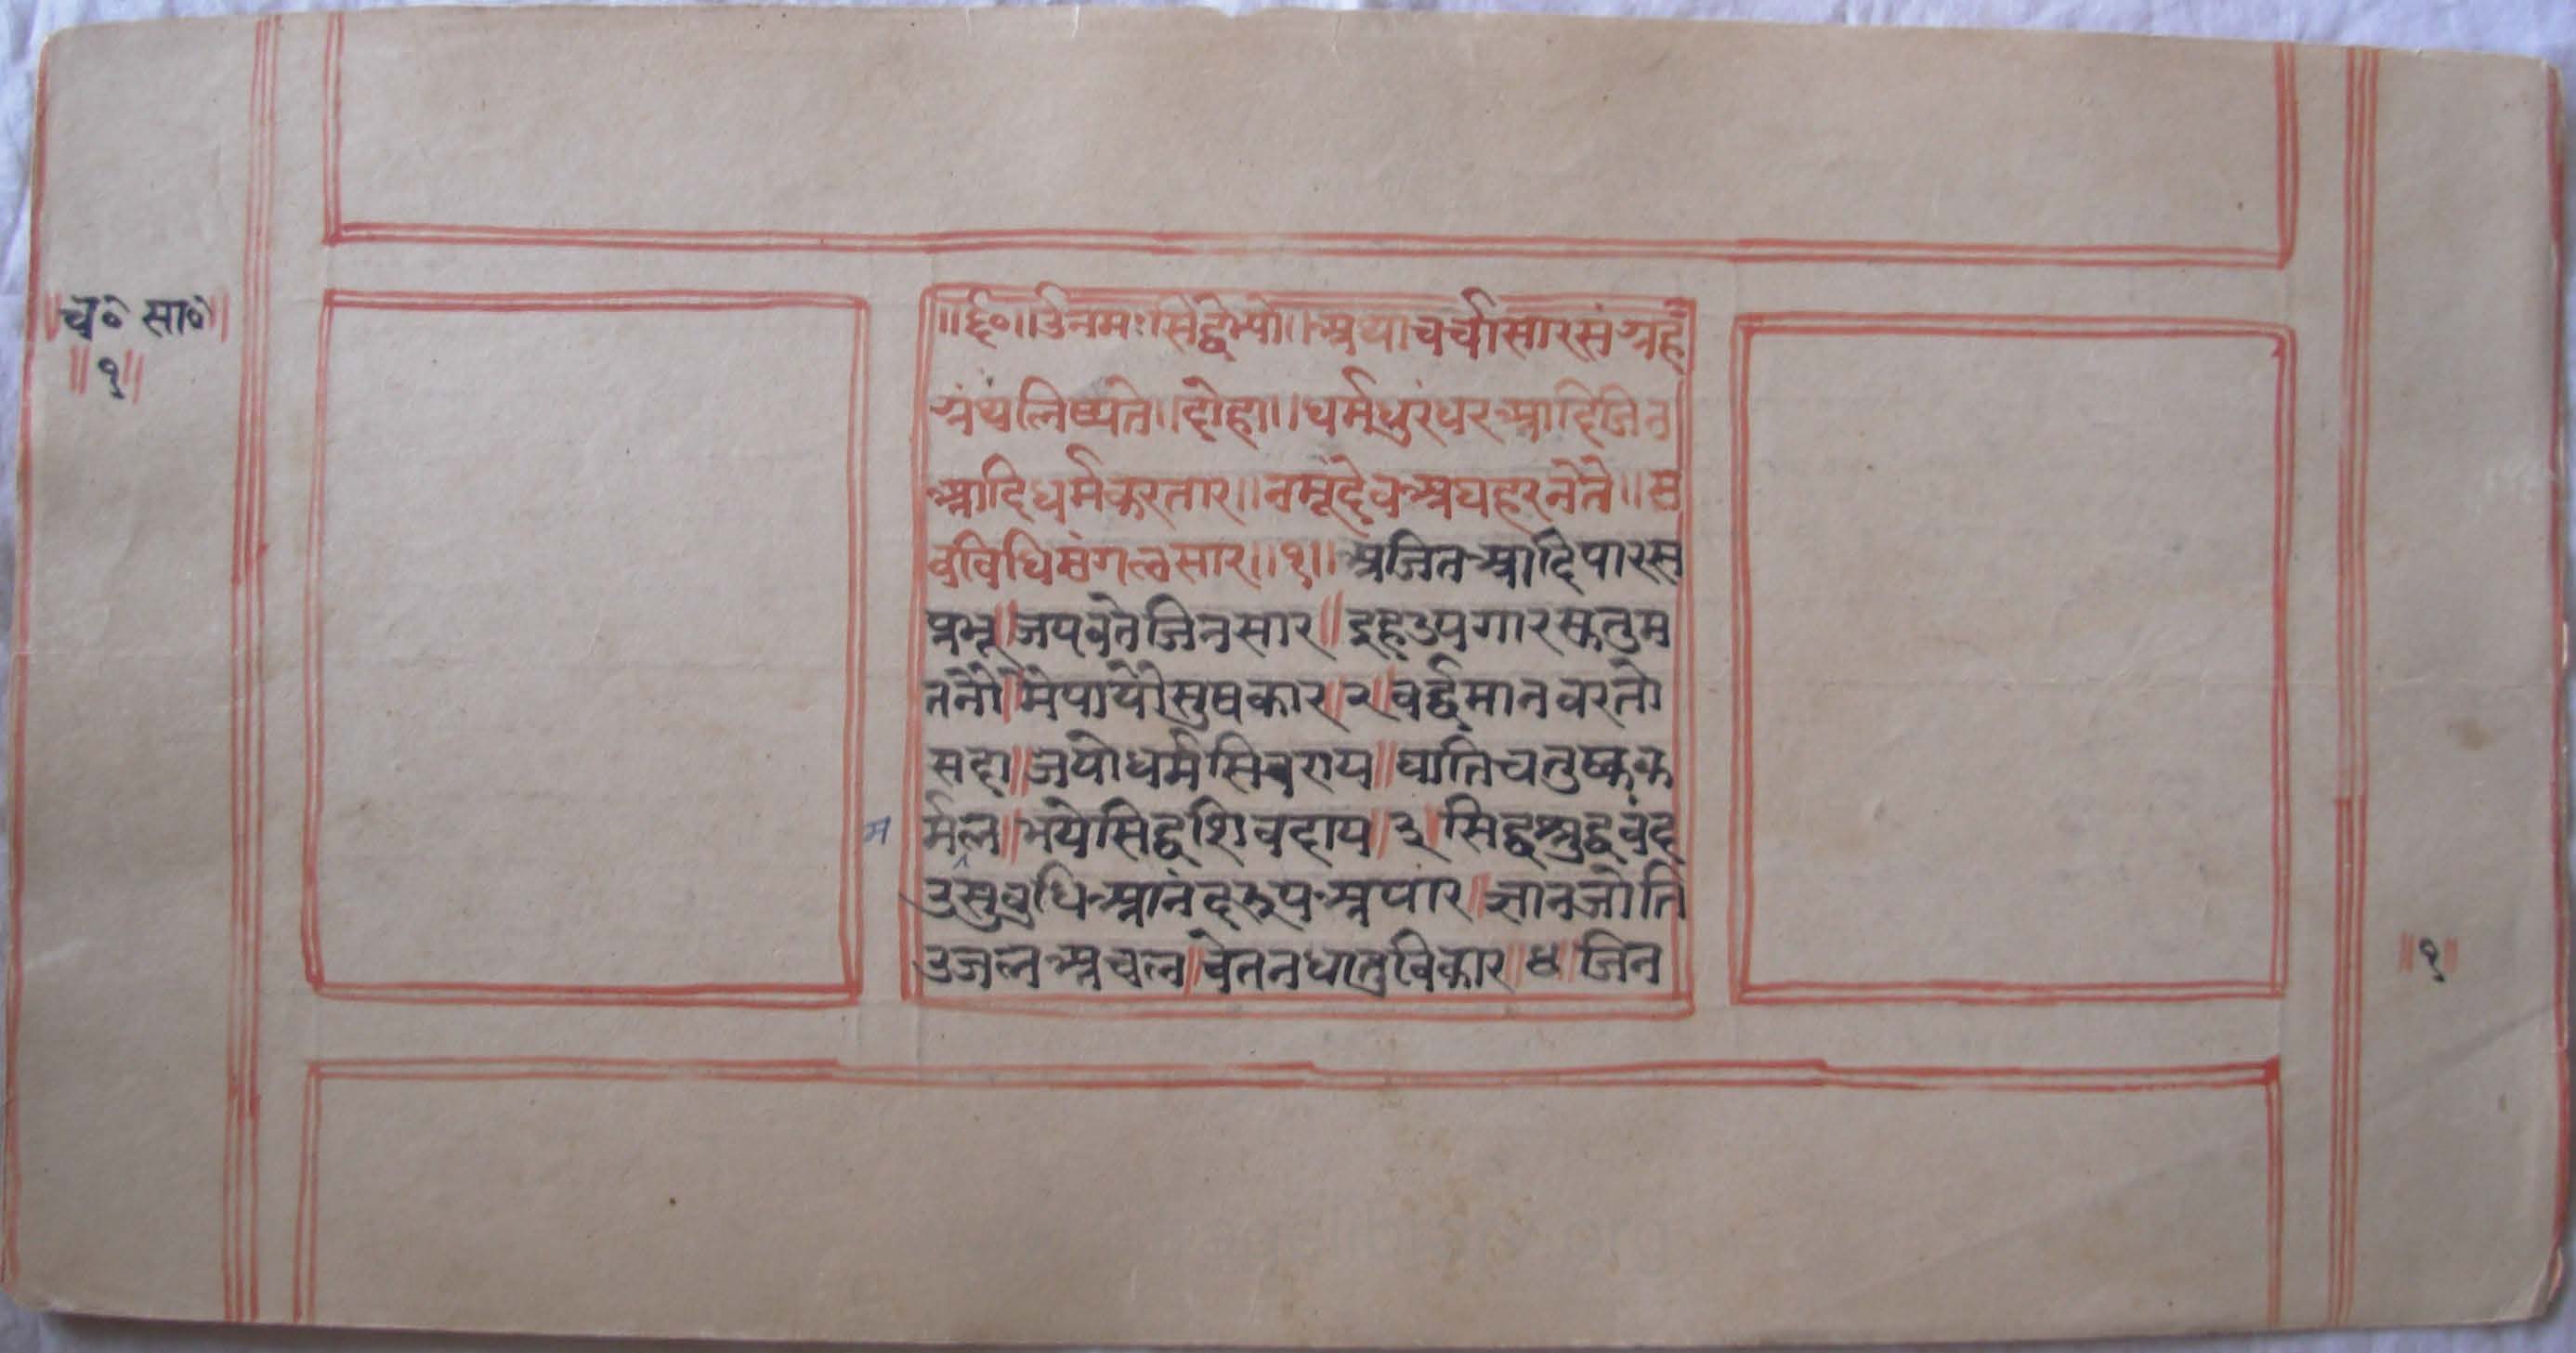 ॥च॰ सा॰॥
॥१॥
॥ई०॥उंनमःसिद्धेभ्यो॥अथाचर्चासारसंग्रह
ग्रंथलिष्यते॥दोहा॥धर्मधुरंधरआदिजिन
आदिधर्मकरतार॥नमूंदेवअघहरनेते॥स
वविधिमंगलसार॥१॥अजितआदिपारस
प्रभू॥जयवंतेजिनसार॥इहउपगारसुतुम
तनौं॥मेपायौसुषकार॥२॥वर्द्धमानवरतो
सदा॥जयोधर्मसिवराय॥घातिचतुष्कक
र्मल॥भयेसिद्धशिवदाय॥३॥सिद्धश्रुद्धवंद
म
उसुबुधिआनंदरूपअपार॥ज्ञानजोति
उजलअचल॥चेतनधातुविकार॥४॥जिन
॥१॥